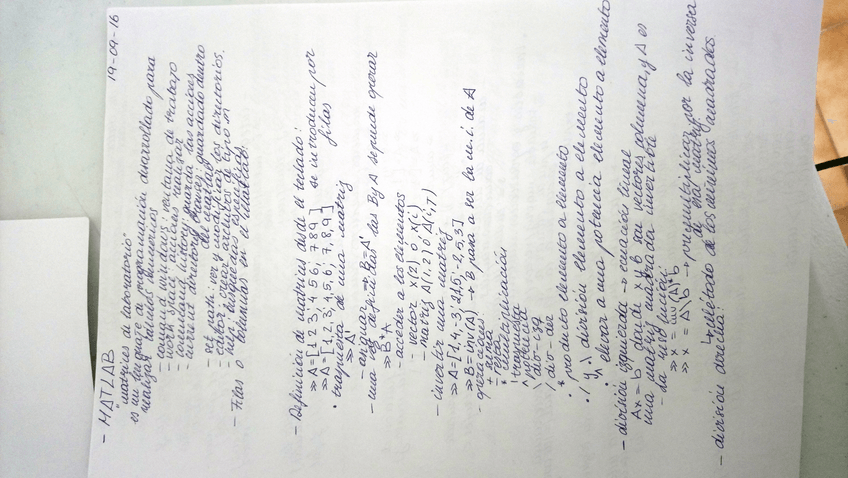 19-09-16
- MATLAB
"matrices de laboratorio"
es un lenguaje de programación desarrollado para
realizar cálculos numéricos
- comand windows: ventana de trabajo
- work space: acciones
- command history: guarda las acciones
- current directory: guardado dentro
del
- set path: ver y modificar los directorios.
- editor: crear archivos de tipo m
- help: búsquedas específicas.
- Filas o columnas en el
- Definición de matrices desde el teclado:
>> A=[1 2 3; 4 5 6; 7 8 9] se introducen por
>> A=[1,2,3; 4,5,6; 7,8,9] filas
• traspuesta de una matriz
>> A'
- asignar → B=A'
- una vez definidas las B y A se puede operar
>> B*A
- acceder a los elementos
- vector x(2) o x(i)
- matriz A(1,2) o A(i,j)
- invertir una matriz
>> A=[1,4,-3;2,1,5;-2,5,3]
>> B=inv(A) → B pasa a ser la m.i. de A
- operaciones
+ suma
- resta
* multiplicación
' traspuesta
^ potencia
\ div-izq
/ div-der
.* producto elemento a elemento
./ y .\ división elemento a elemento
.^ elevar a una potencia elemento a elemento
- división izquierda → ecuación lineal
Ax=b donde x y b son vectores columna, y A es
una matriz cuadrada invertible
- la resolución
>> x = inv(A)*b
>> x = A\b → premultiplicar por la inversa
de esa matriz
- división directa:
↳ método de los mínimos cuadrados.